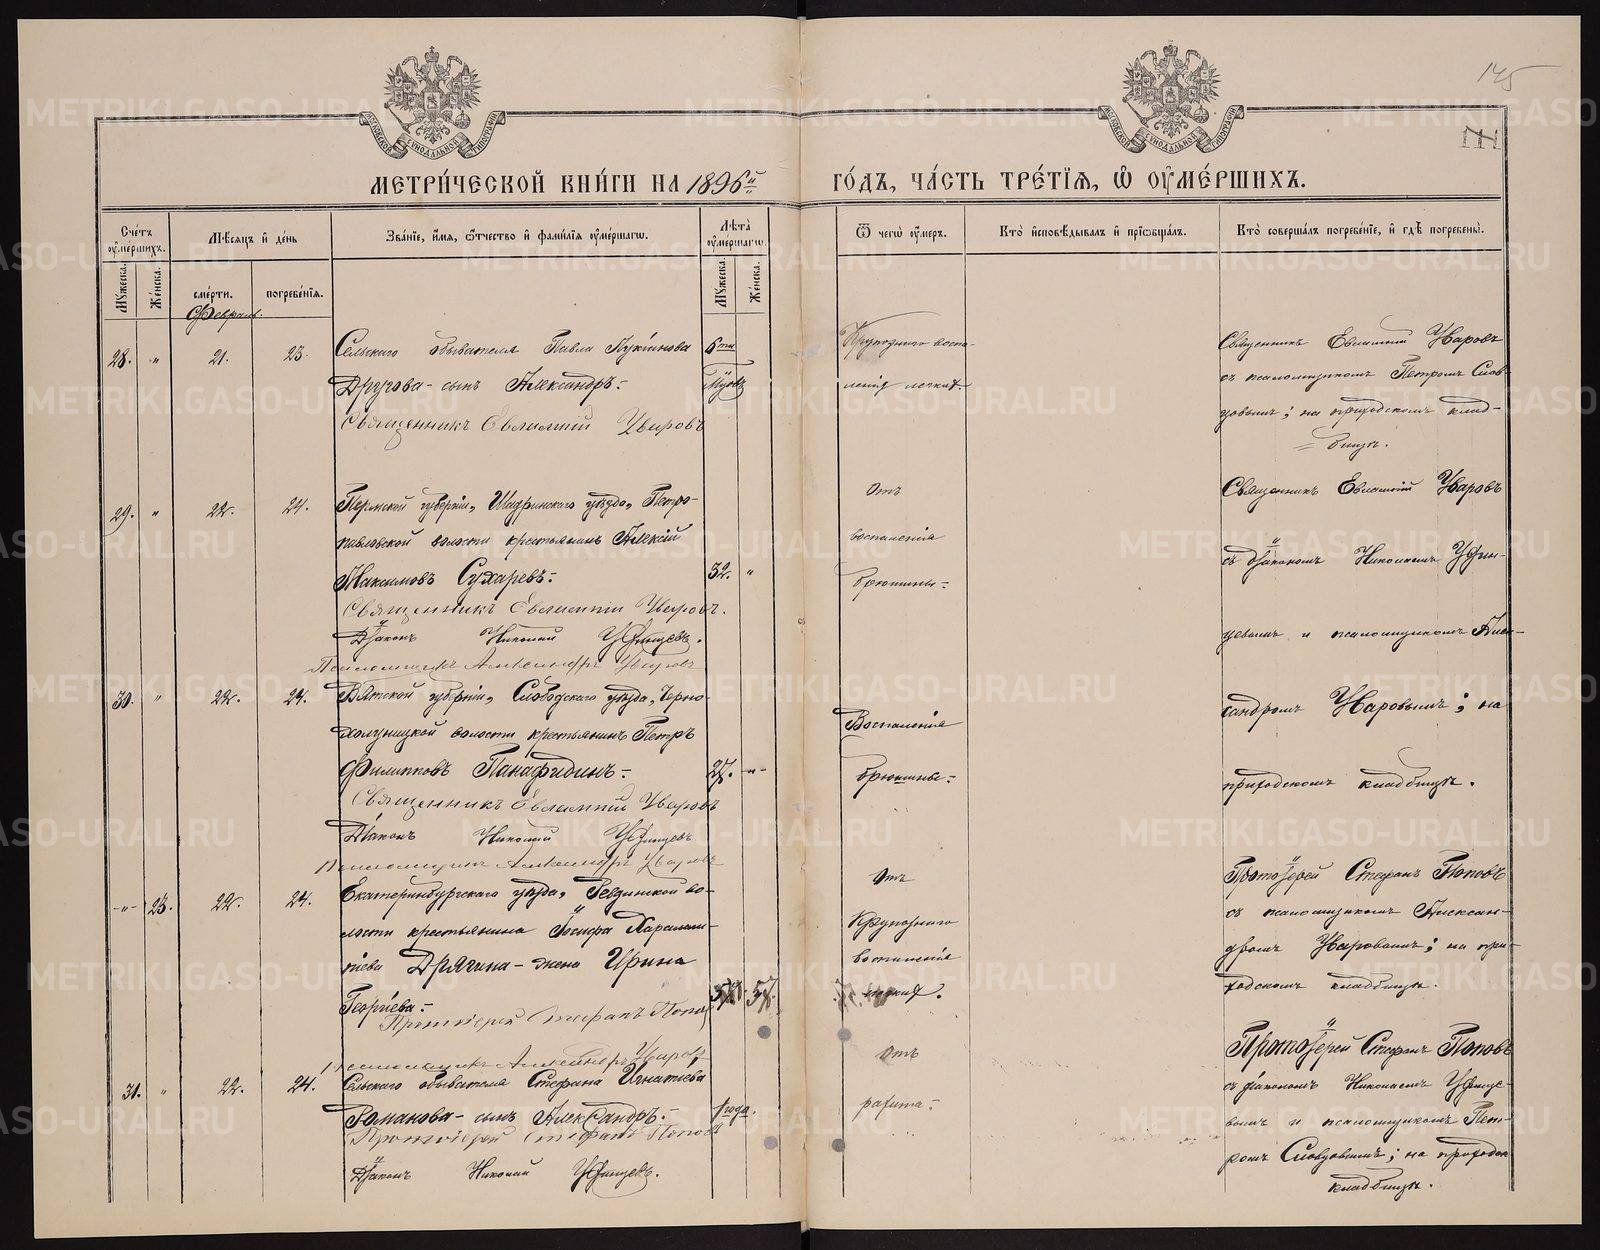 145
МЕТРИ́ЧЕСКОЙ КНИ́ГИ НА 1896й ГО́ДЪ, ЧА́СТЬ ТРЕ́ТІЯ, Ѿ ОУМЕ́РШИХЪ.
Сче́тъ оумершихъ.
Мѣсяцъ и де́нь
Зва́ніе, и́мя, ѻ́тчество и фами́лія оуме́ршагѡ.
Лѣта̀ оуме́ршагѡ
Ѿ чегѡ̀ оу́меръ.
Кто̀ исповѣ́дывалъ и прїѡбща́лъ.
Кто̀ соверша́лъ погребе́ніе, и гдѣ̀ погребены̀.
Мужеска.
Же́нска.
сме́рти.
погребе́нія.
Мужеска.
Же́нска.
Февраль.
28. " 21. 23.
Сельскаго обывателя Павла
Другова - сынъ Александръ.
Священникъ Евлампій Уваровъ
6ти
Крупознаго воспа-
ленія легкихъ
Священникъ Евлампій Уваровъ
съ псаломщикомъ Петромъ Слов-
цовымъ; на приходскомъ клад-
бищѣ.
29. " 22. 24.
Пермской губерніи, Шадринскаго уѣзда, Петро-
павловской волости крестьянинъ Алексій
Максимовъ Сухаревъ.
Священникъ Евлампій Уваровъ.
Діаконъ Николай Уфинцевъ.
Псаломщикъ Александръ Уваровъ
52. "
Отъ
воспаленія
брюшины.
Священникъ Евлампій Уваровъ
съ діакономъ Николаемъ Уфин-
цевымъ и псаломщикомъ Алек-
сандромъ Уваровымъ; на
приходскомъ кладбищѣ.
30. " 22. 24.
Вятской губерніи, Слободскаго уѣзда, Черно-
холуницкой волости крестьянинъ Петръ
Филипповъ Панафидинъ.
Священникъ Евлампій Уваровъ
Діаконъ Николай Уфинцевъ
Псаломщикъ Александръ Уваровъ
27. "
Воспаленія
брюшины.
" 23. 22. 24.
Екатеринбургскаго уѣзда, Ревдинской во-
лости крестьянина Іосифа Харламп-
іева Дрягина - жена Ирина
Георгіева.
Протоіерей Стефанъ Поповъ
Псаломщикъ Александръ Уваровъ
57.
Отъ
Крупознаго
воспаленія
легкихъ.
Протоіерей Стефанъ Поповъ
съ псаломщикомъ Алексан-
дромъ Уваровымъ; на при-
ходскомъ кладбищѣ.
31. " 22. 24.
Сельскаго обывателя Стефана Игнатіева
Романова - сынъ Александръ.
Протоіерей Стефанъ Поповъ
Діаконъ Николай Уфинцевъ.
1 года.
Отъ
рахита.
Протоіерей Стефанъ Поповъ
съ діакономъ Николаемъ Уфинце-
вымъ и псаломщикомъ Пет-
ромъ Словцовымъ; на приходск
кладбищѣ.
METRIKI.GASO-URAL.RU